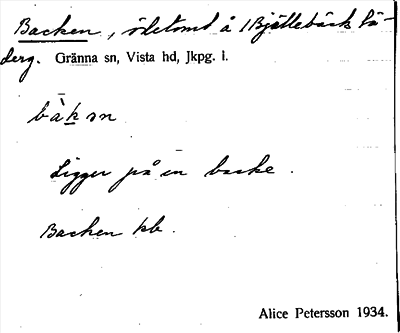 Backen, ödetomt å 1 Bjällebäck sä-
derg. Gränna sn, Vista hd, Jkpg. l.
bàkan
Ligger på en backe.
Backen kb.
Alice Petersson 1934.